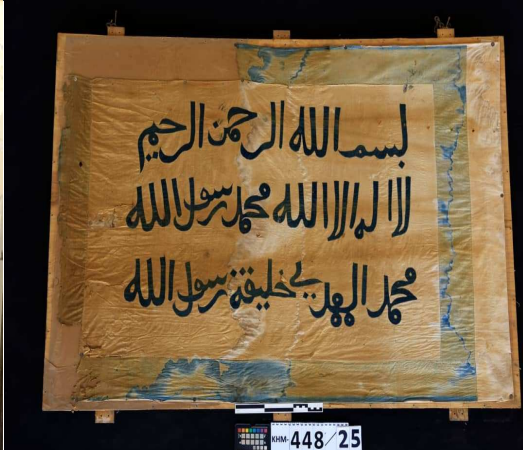 بسم الله الرحمن الرحيم
لا اله الا الله محمد رسول الله
محمد المهدي خليفة رسول الله
KHM- 448/25